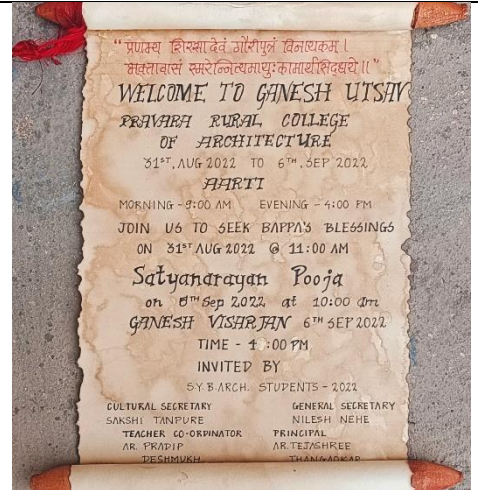 “ प्रणम्य शिरसा देवं गौरीपुत्रं विनायकम् ।
भक्तावासं स्मरेन्नित्यमायुःकामार्थसिद्धये ।। ”
WELCOME TO GANESH UTSAV
PRAVARA RURAL COLLEGE
OF ARCHITECTURE
31ST, AUG 2022 TO 6TH, SEP 2022
AARTI
MORNING - 9:00 AM EVENING - 4:00 PM
JOIN US TO SEEK BAPPA'S BLESSINGS
ON 31ST AUG 2022 @ 11:00 AM
Satyanarayan Pooja
on 5TH Sep 2022 at 10:00 am
GANESH VISARJAN 6TH SEP 2022
TIME - 4:00 PM
INVITED BY
S.Y.B.ARCH. STUDENTS - 2022
CULTURAL SECRETARY GENERAL SECRETARY
SAKSHI TANPURE NILESH NEHE
TEACHER CO-ORDINATOR PRINCIPAL
AR. PRADIP AR. TEJASHREE
DESHMUKH THANGAOKAR